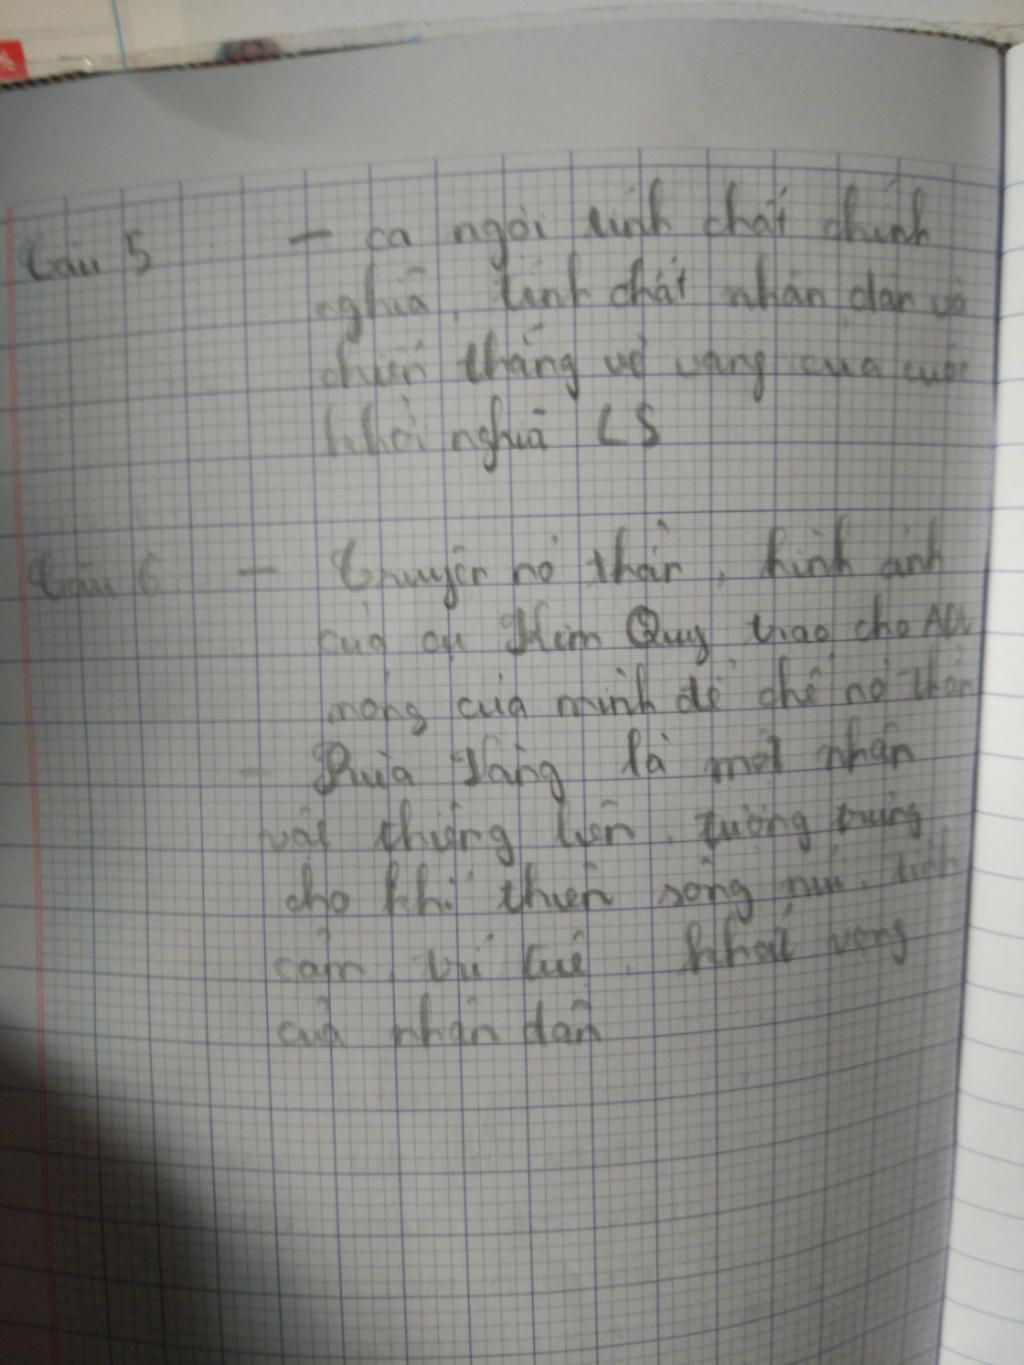 Câu 5 - ca ngợi tính chất chính
nghĩa, tính chất nhân dân và
chiến thắng vẻ vang của cuộc
khởi nghĩa LS
Câu 6 - Truyện nỏ thần, hình ảnh
của Kim Quy trao cho ADV
móng của mình để chế nỏ thần
- Rùa Vàng là một nhân
vật thiêng liên, tượng trưng
cho khí thiên sông núi, tình
cảm, trí tuệ, khát vọng
của nhân dân